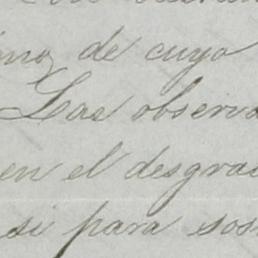 de cuyo
Las observa
en el desgra
si para sos